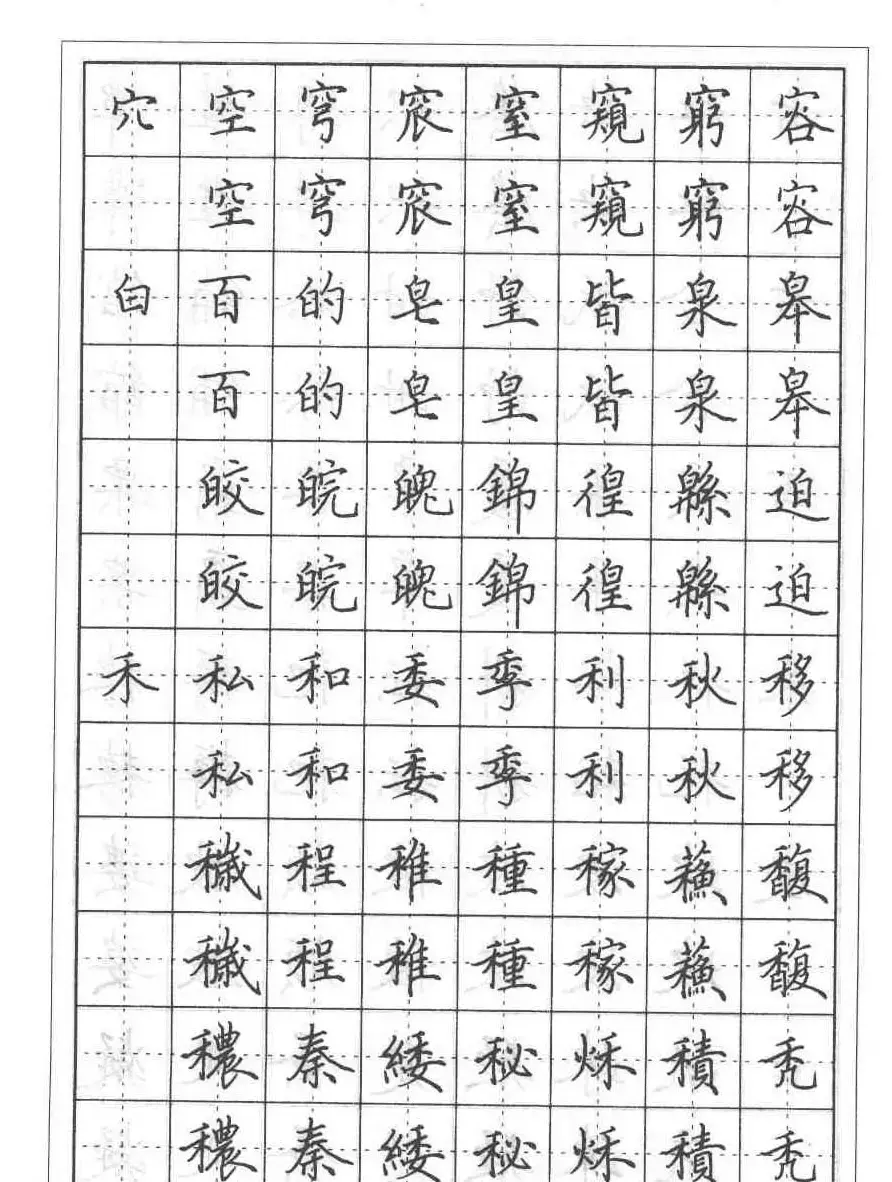 穴空穹窘窒窺窮容
空穹窘窒窺窮容
白百的皂皇皆泉皋
百的皂皇皆泉皋
皎皖魄錦徨緜迫
皎皖魄錦徨緜迫
禾私和委季利秋移
私和委季利秋移
穢程稚種稼蘇馥
穢程稚種稼蘇馥
穠秦緌秘烌積禿
穠秦緌秘烌積禿